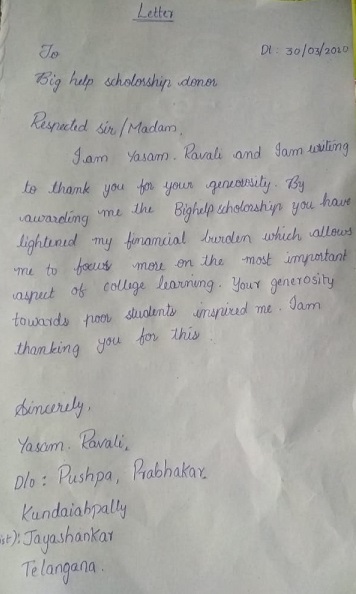 Letter
To
Dt: 30/03/2020
Big help scholorship donor
Respected sir/Madam,
I.am Yasam. Ravali and Iam writing
to thank you for your generousity. By
awarding me the Bighelp scholorship you have
lightened my financial burden which allows
me to focus more on the most important
aspect of college learning. Your generosity
towards poor students inspired me. Iam
thanking you for this.
Sincerely,
Yasam. Ravali,
D/o: Pushpa, Prabhakar.
Kundaiahpally
ist): Jayashankar
Telangana.